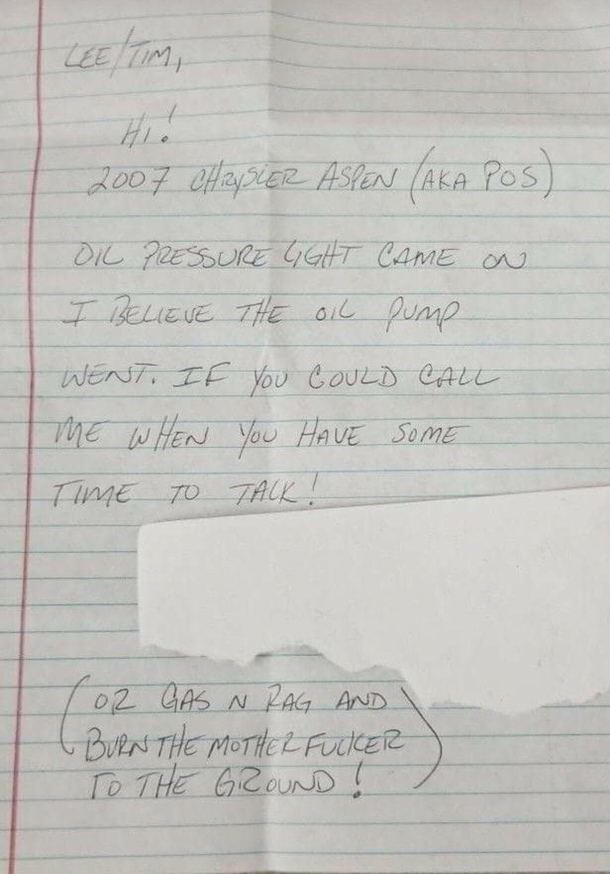 LEE/TIM,
HI!
2007 CHRYSLER ASPEN (AKA POS)
OIL PRESSURE LIGHT CAME ON
I BELIEVE THE OIL PUMP
WENT. IF YOU COULD CALL
ME WHEN YOU HAVE SOME
TIME TO TALK!
(OR GAS N RAG AND
BURN THE MOTHER FUCKER
TO THE GROUND!)